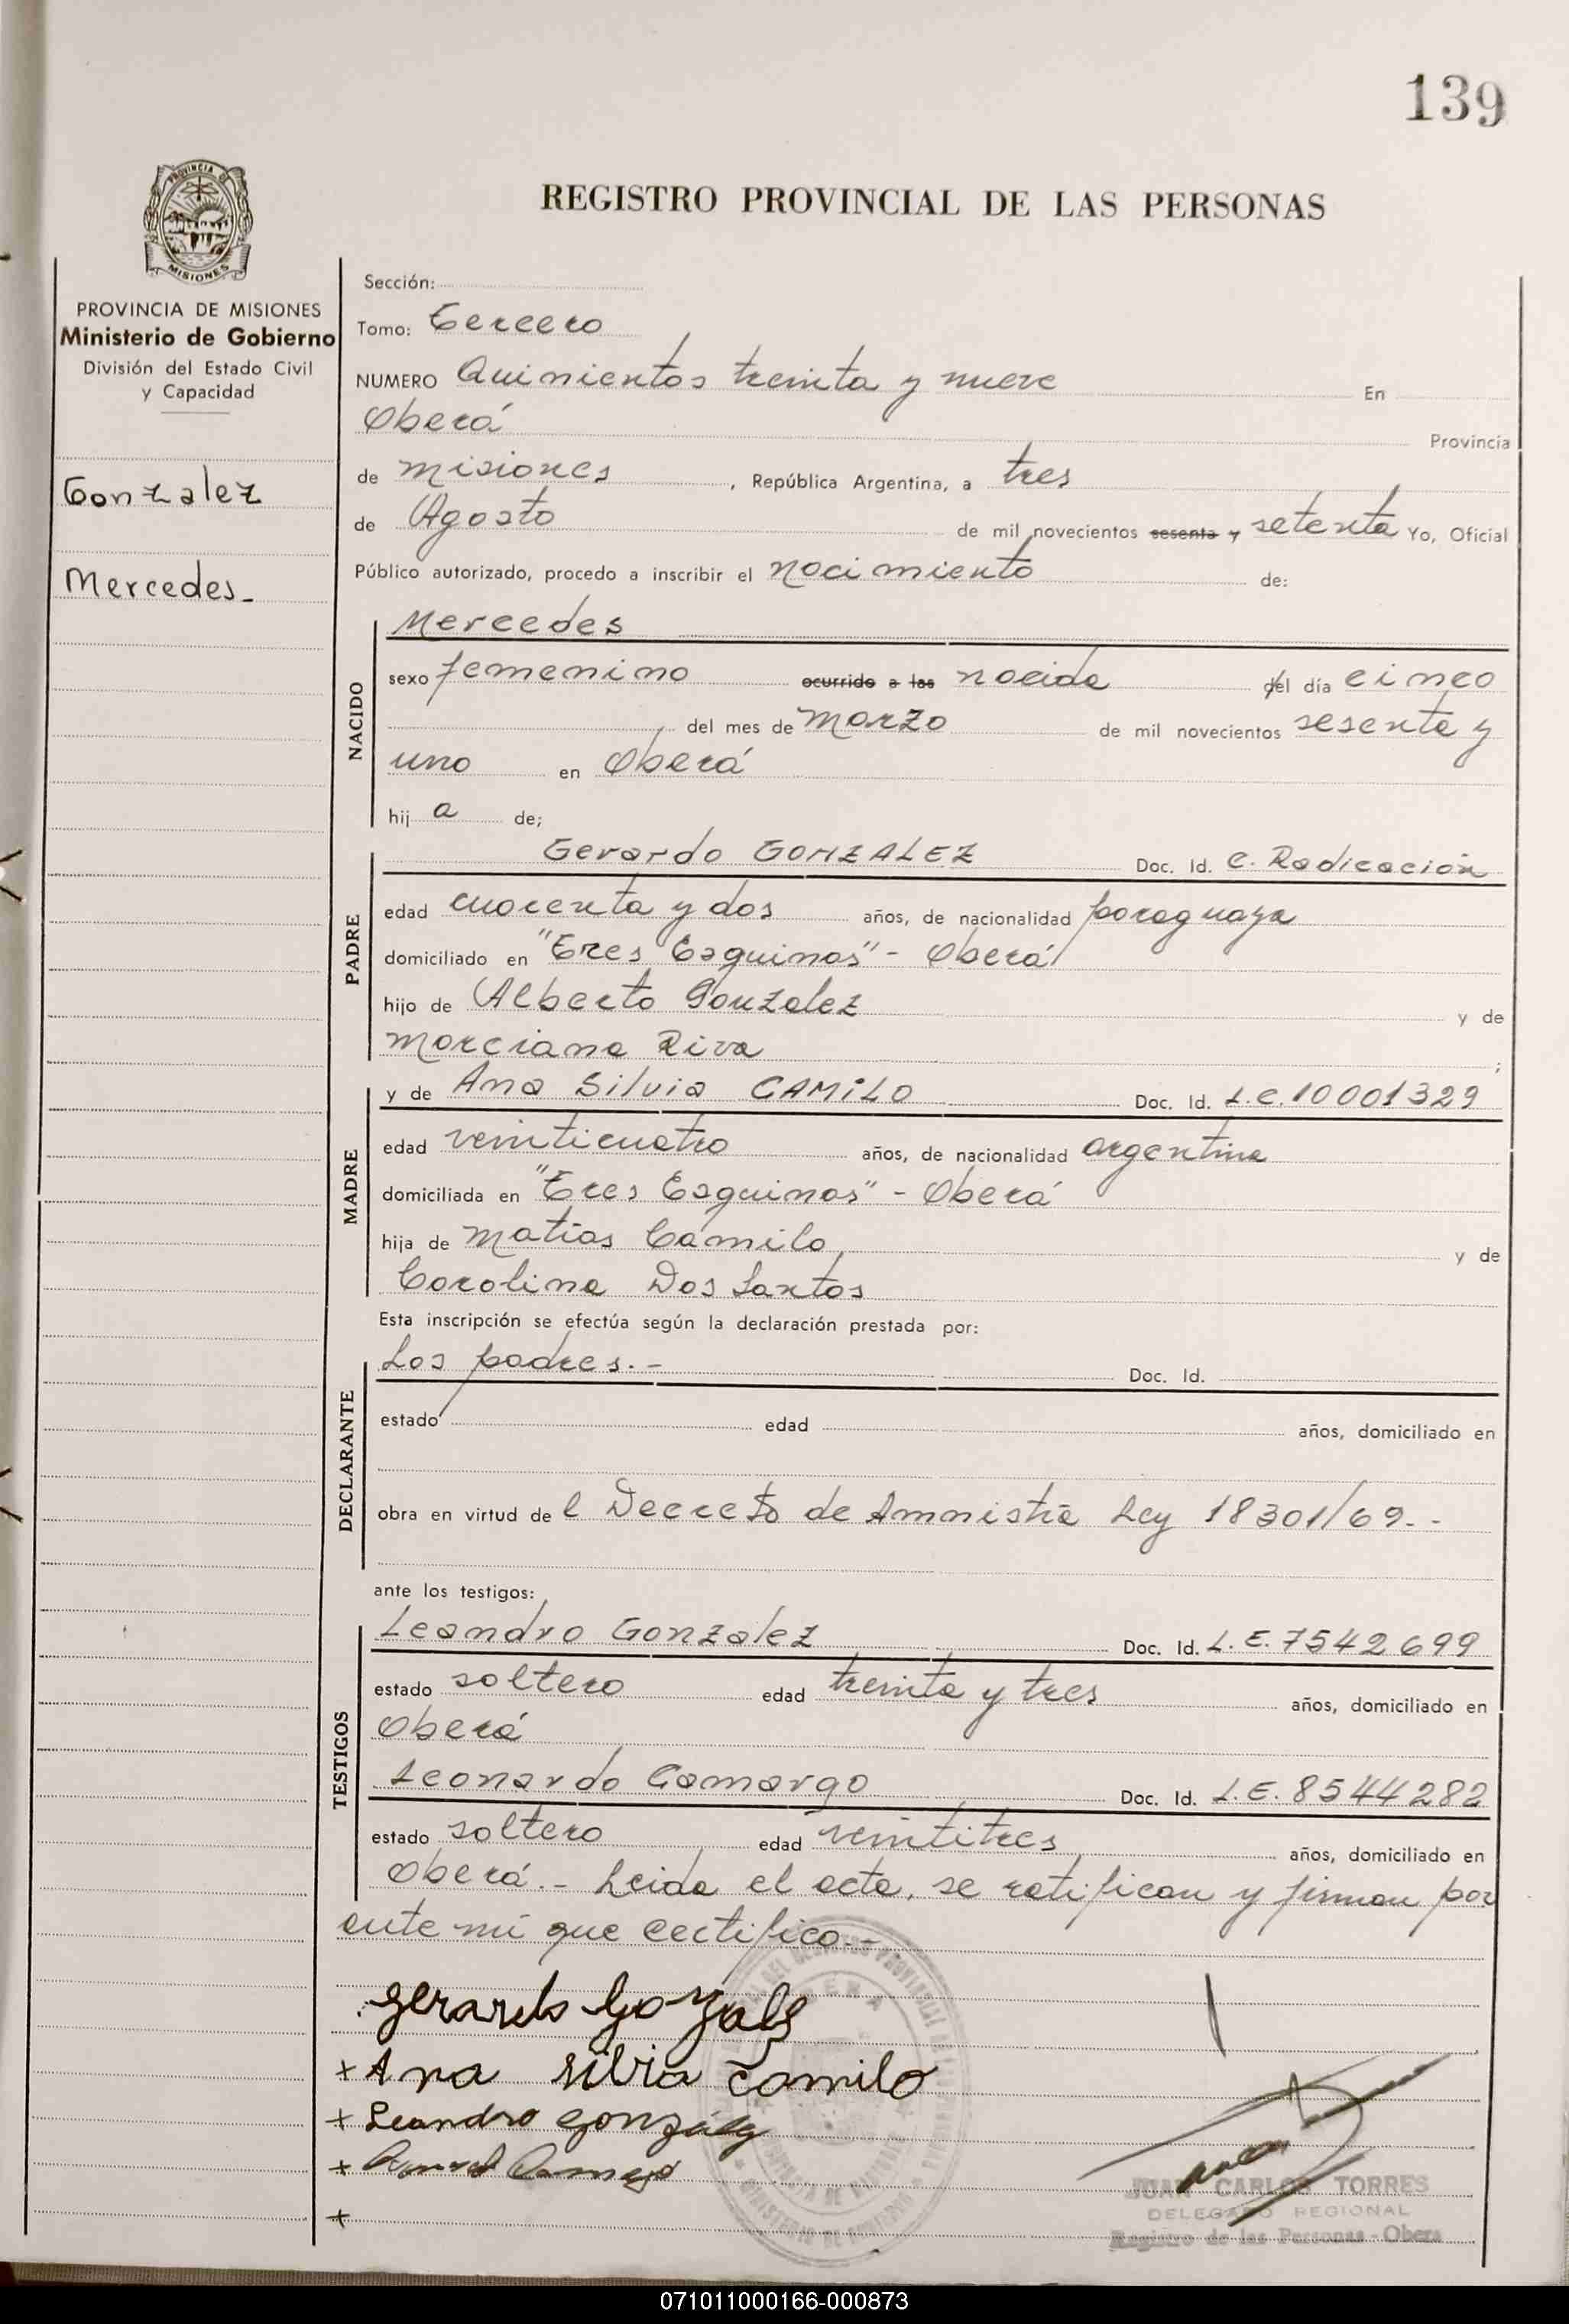 139
REGISTRO PROVINCIAL DE LAS PERSONAS
PROVINCIA DE MISIONES
Ministerio de Gobierno
División del Estado Civil
y Capacidad
Gonzalez
Mercedes-
Sección:
Tomo: Tercero
NUMERO Quinientos treinta y nueve En
Oberá Provincia
de misiones, República Argentina, a tres
de Agosto de mil novecientos sesenta y setenta Yo, Oficial
Público autorizado, procedo a inscribir el nacimiento de:
NACIDO
Mercedes
sexo femenino ocurrido a las nacida del día cinco
del mes de marzo de mil novecientos sesenta y
uno en Oberá
hij a de;
PADRE
Gerardo GONZALEZ Doc. Id. C. Radicación
edad cuarenta y dos años, de nacionalidad paraguaya
domiciliado en "Tres Esquinas" - Oberá
hijo de Alberto Gonzalez y de
Marciana Riva ;
MADRE
y de Ana Silvia CAMILO Doc. Id. L.C. 10001329
edad veinticuatro años, de nacionalidad argentina
domiciliada en "Tres Esquinas" - Oberá
hija de Matías Camilo y de
Carolina Dos Santos
Esta inscripción se efectúa según la declaración prestada por:
DECLARANTE
Los padres.- Doc. Id.
estado edad años, domiciliado en
obra en virtud de l Decreto de Amnistía Ley 18301/69.-
ante los testigos:
TESTIGOS
Leandro Gonzalez Doc. Id. L.E. 7542699
estado soltero edad treinta y tres años, domiciliado en
Oberá
Leonardo Camargo Doc. Id. L.E. 8544282
estado soltero edad veintitres años, domiciliado en
Oberá.- Leida el acta, se ratifican y firman por
ante mí que certifico.-
Gerardo Gonzalez
+ Ana silvia Camilo
+ Leandro gonzález
+
+
JUAN CARLOS TORRES
DELEGADO REGIONAL
Registro de las Personas - Obera
071011000166-000873